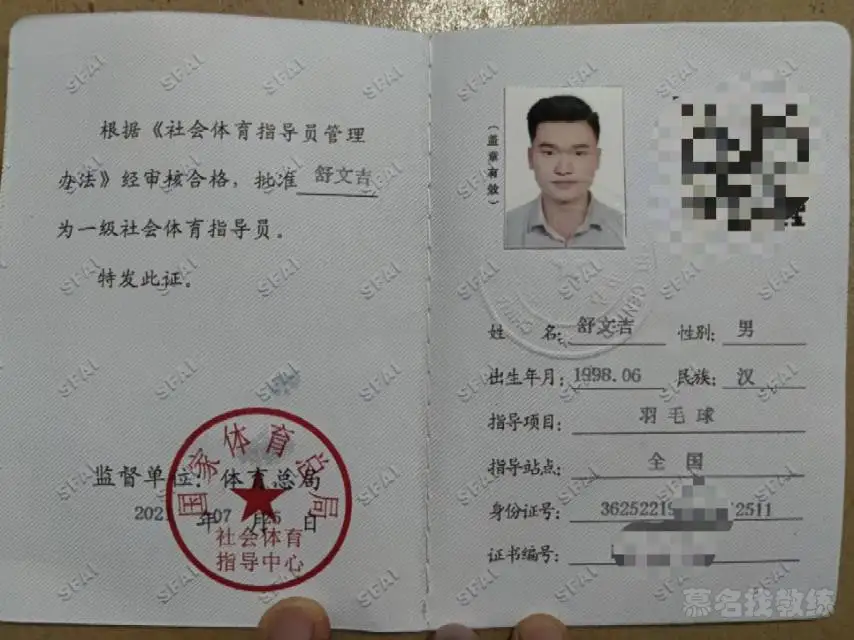 根据《社会体育指导员管理
办法》经审核合格，批准 舒文吉
为一级社会体育指导员。
特发此证。
监督单位：体育总局
年07月 日
国家体育总局
社会体育
指导中心
（盖章有效）
姓 名：舒文吉 性别：男
出生年月：1998.06 民族：汉
指导项目：羽毛球
指导站点：全国
身份证号：
证书编号：
SFAI
慕名找教练